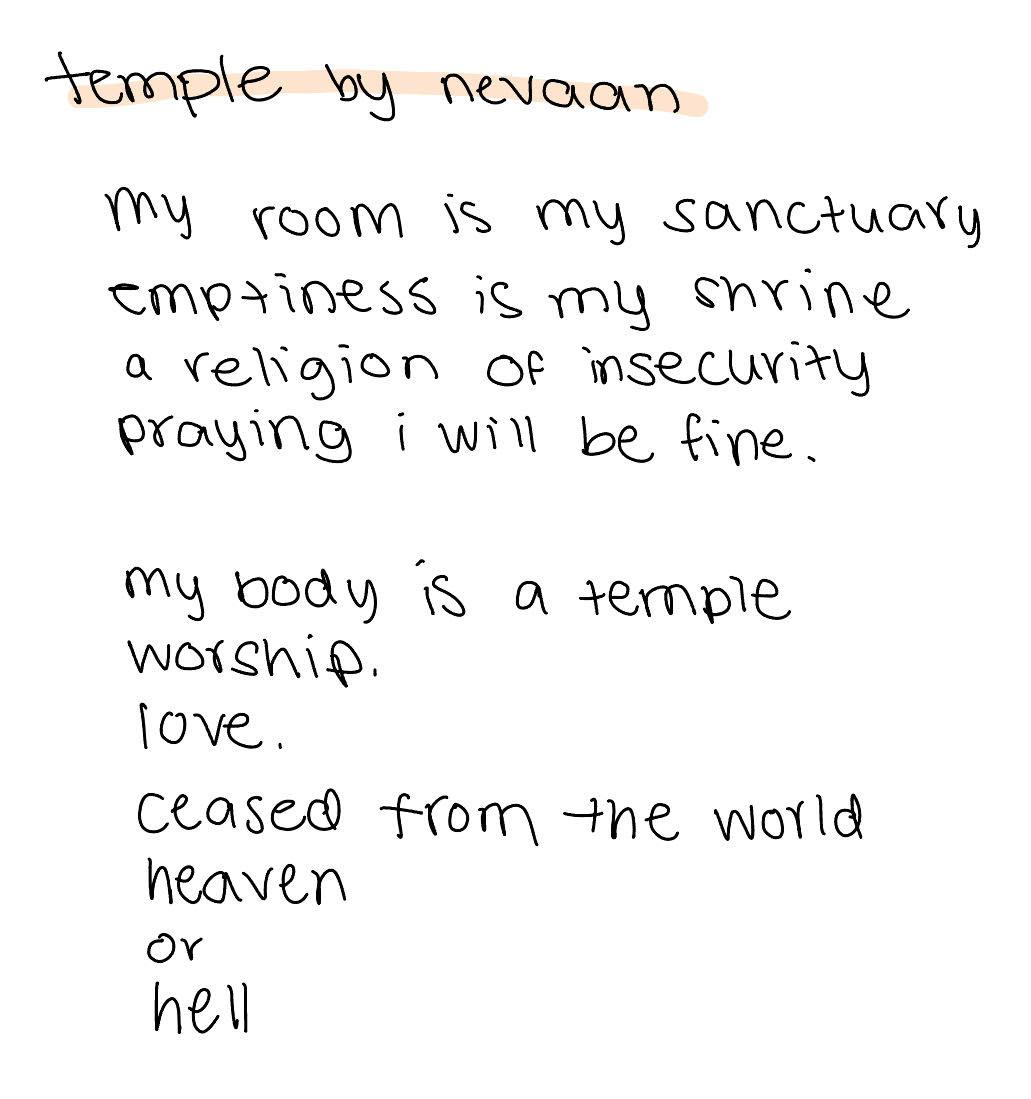 temple by nevaan
my room is my sanctuary
emptiness is my shrine
a religion of insecurity
praying i will be fine.
my body is a temple
worship.
love.
ceased from the world
heaven
or
hell